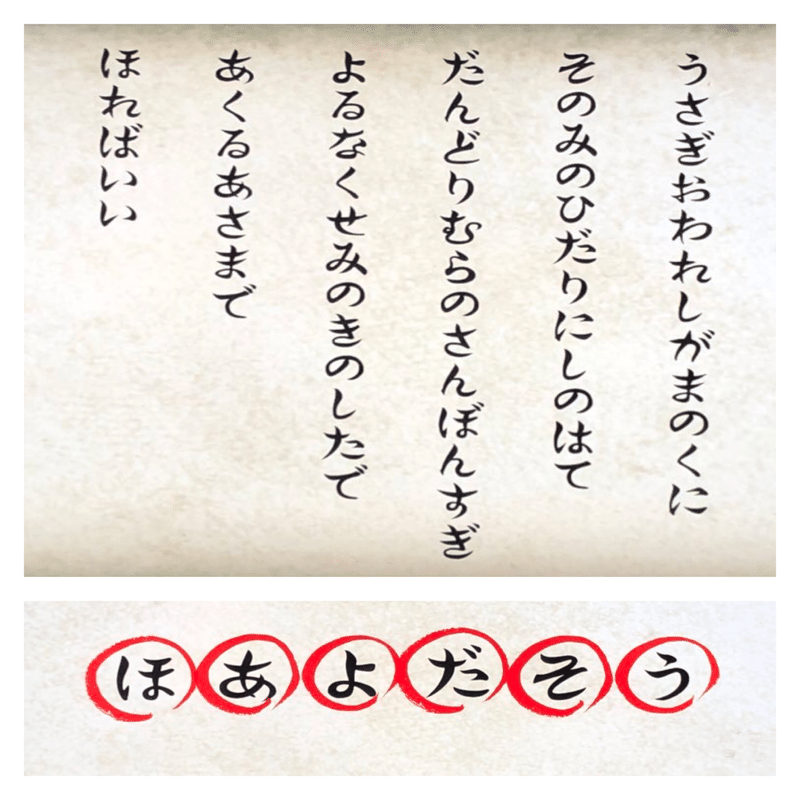 うさぎおわれしがまのくに
そのみのひだりにしのはて
だんどりむらのさんぼんすぎ
よるなくせみのきのしたで
あくるあさまで
ほればいい
ほあよだそう